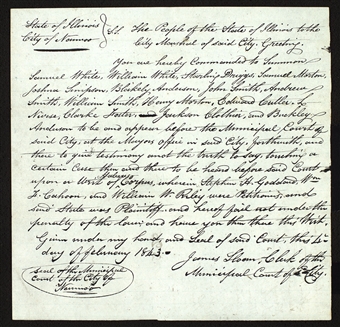 State of Illinois
City of Nauvoo
The People of the State of Illinois to the
City Marshal of said City, Greeting.
You are hereby Commanded to Summon
Samuel White, William White, Sterling Driggs, Samuel Morton,
Joshua Simpson, Blakely Anderson, John Smith, Andrew
Smith, William Smith, Henry Morton, Edward Culler,
Clarke Foster, Jackson Clothier, and Buckley
Anderson to be and appear before the Municipal Court of
said City, at the Mayors office in said City, forthwith, and
there to give testimony and the truth to say, touching a
certain case then and there to be heard before said Court
upon a Writ of Habeas Corpus, wherein Stephen H. Goddard, Wm
F. Cahoon, and William W. Riley were Petitioners, and
said State was Plaintiff. and hereof fail not under the
penalty of the law, and have you then there this Writ.
Given under my hand, and seal of said Court, this
day of February 1843.
James Sloan, Clerk of the
Municipal Court of City.
Seal of the Municipal
Court of the City of
Nauvoo